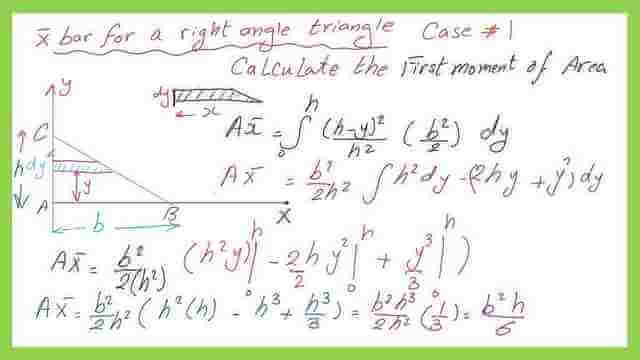 x̄ bar for a right angle triangle Case #1
Calculate the First moment of Area
y
dy
x
C
h dy
y
A
B
X
b
Ax̄ = ∫₀ʰ (h-y)²/h² (b²/2) dy
Ax̄ = b²/2h² ∫ h² dy - (2hy + y²) dy
Ax̄ = b²/2(h²) (h²y)|₀ʰ - 2h/2 y²|₀ʰ + y³/3|₀ʰ)
Ax̄ = b²/2h² (h²(h) - h³ + h³/3) = b²h³/2h² (1/3) = b²h/6